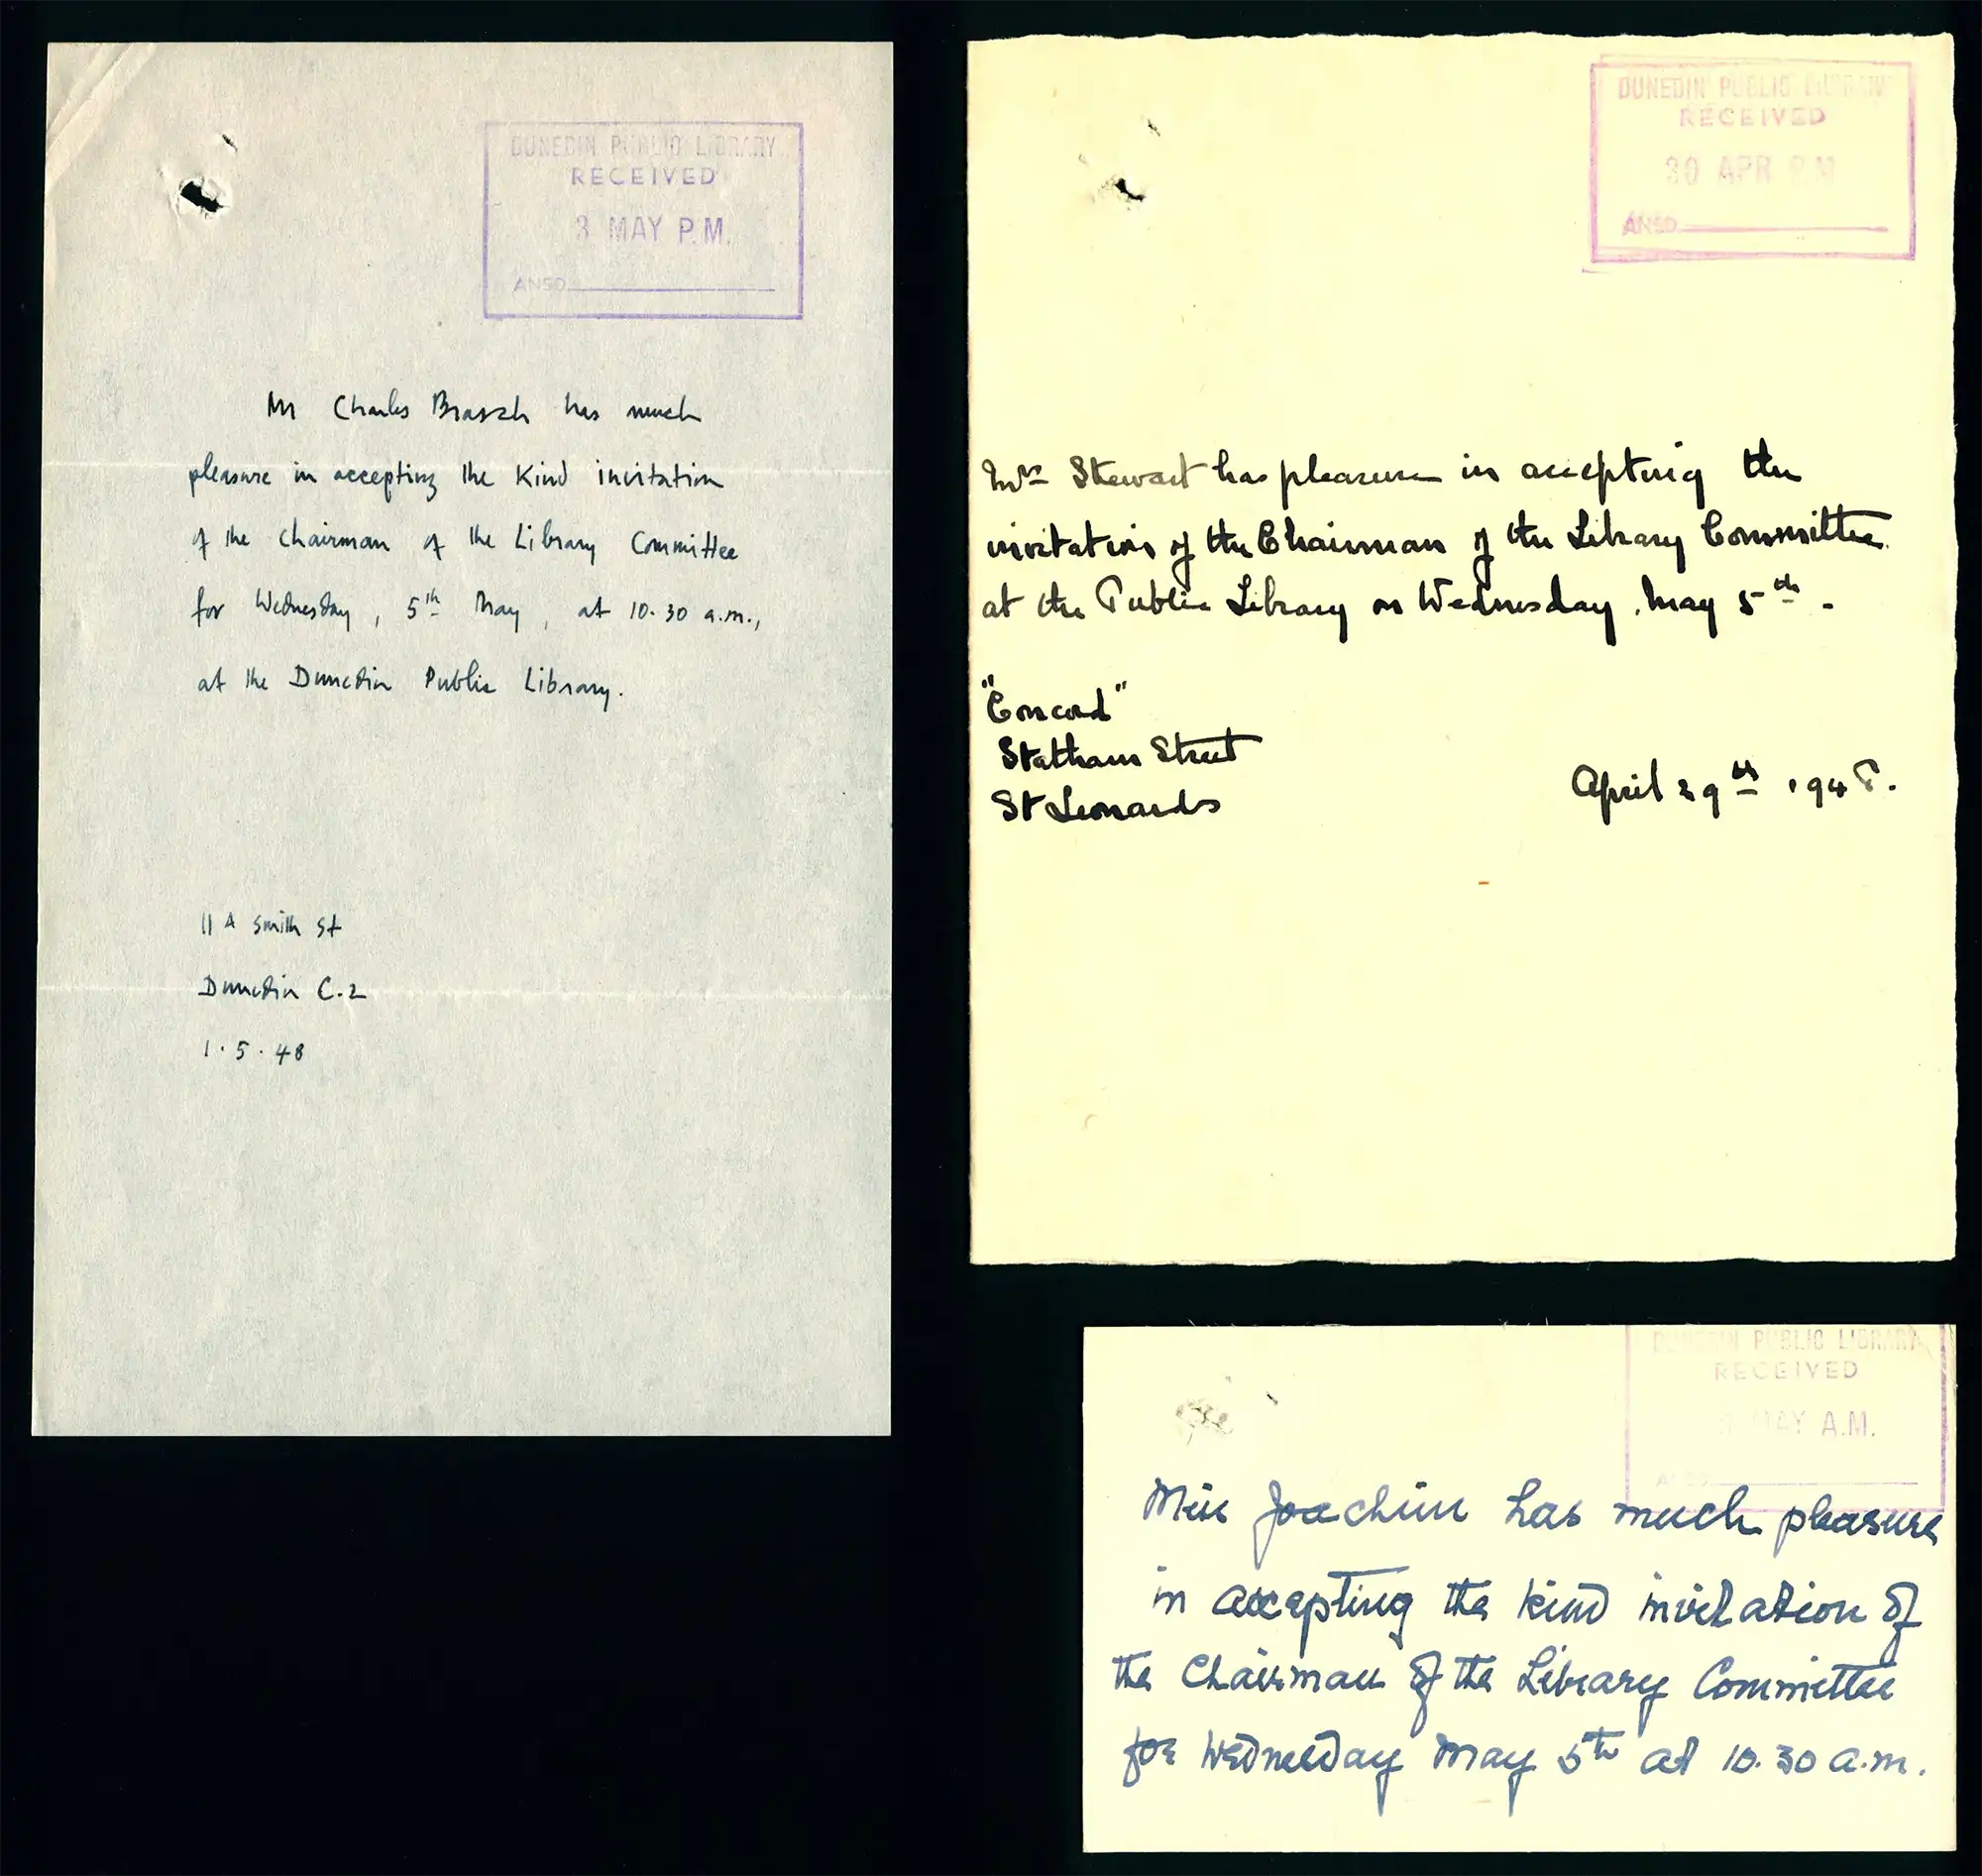 DUNEDIN PUBLIC LIBRARY
RECEIVED
3 MAY P.M.
ANSD
Mr Charles Brasch has much
pleasure in accepting the kind invitation
of the Chairman of the Library Committee
for Wednesday, 5th May, at 10.30 a.m.,
at the Dunedin Public Library.
11A Smith St
Dunedin C.2
1.5.48
DUNEDIN PUBLIC LIBRARY
RECEIVED
30 APR P.M.
ANSD
Mrs Stewart has pleasure in accepting the
invitation of the Chairman of the Library Committee
at the Public Library on Wednesday, May 5th.
"Concord"
Statham Street
St Leonards
April 29th 1948.
DUNEDIN PUBLIC LIBRARY
RECEIVED
MAY A.M.
ANSD
Miss Joachim has much pleasure
in accepting the kind invitation of
the Chairman of the Library Committee
for Wednesday May 5th at 10.30 a.m.